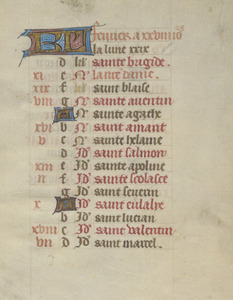 KL feurier a xxviii iours
la lune xxix
d kl' sainte brigide.
xi e N' la cte dame.
xix f N' saint blaise
viii g N' sainte auentin
A N' sainte agathe
xvi b N' saint amant
v c N' sainte helaine
d Id' saint salmon
xiii e Id' sainte apoline
ii f Id' sainte scolasce
g Id' saint seuerin
x A Id' sainte eulalye
b Id' saint lucian
xviii c Id' saint valentin
vii d Id' saint marcel.